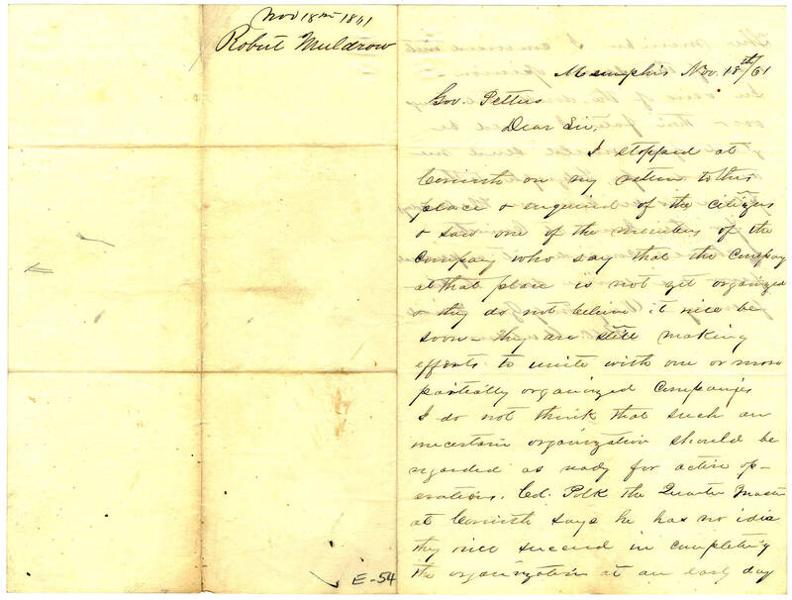 Nov 18th 1861
Robert Muldrow
E-54
Memphis Nov. 18th/61
Gov. Pettus
Dear Sir,
I stopped at
Corinth on my return to this
place & enquired of the citizens
& saw one of the members of the
Company who say that the Company
at that place is not yet organized
& they do not believe it will be
soon - they are still making
efforts to unite with one or more
partially organized Companies
I do not think that such an
uncertain organization should be
regarded as ready for active op-
erations. Col. Polk the Quarter Master
at Corinth says he has no idia
they will succeed in completing
the organization at an early day